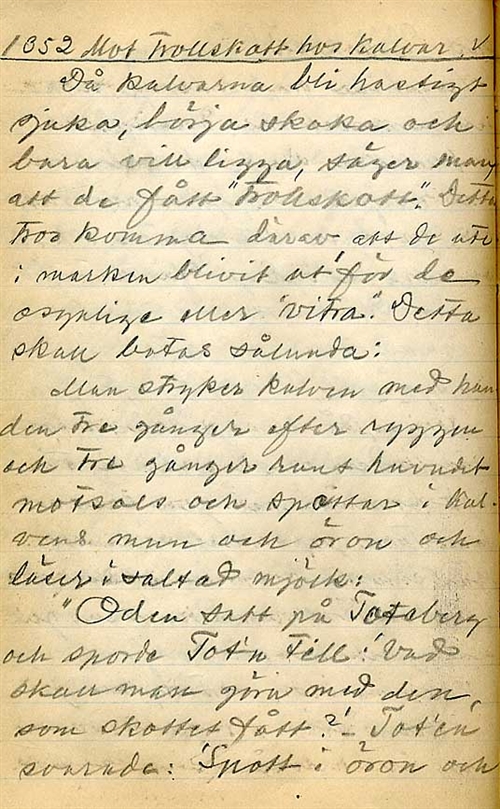 1352 Mot Trollskott hos kalvar. V
Då kalvarna bli hastigt
sjuka, börja skaka och
bara vill ligga, säger man,
att de fått "Trollskott". Detta
tros komma därav att de ute
i marken blivit ut för de
osynlige eller "vitra". Detta
skall botas sålunda:
Man stryker kalven med han
den tre gånger efter ryggen
och tre gånger runt huvudet
motsols och spottar i kal-
vens mun och öron och
läser i saltad mjölk:
"Oden satt på Totaberg
och sporde Tot'n till: 'Vad
skall man göra med den,
som skottet fått?' – Tot'en
svarade: 'Spott i öron och